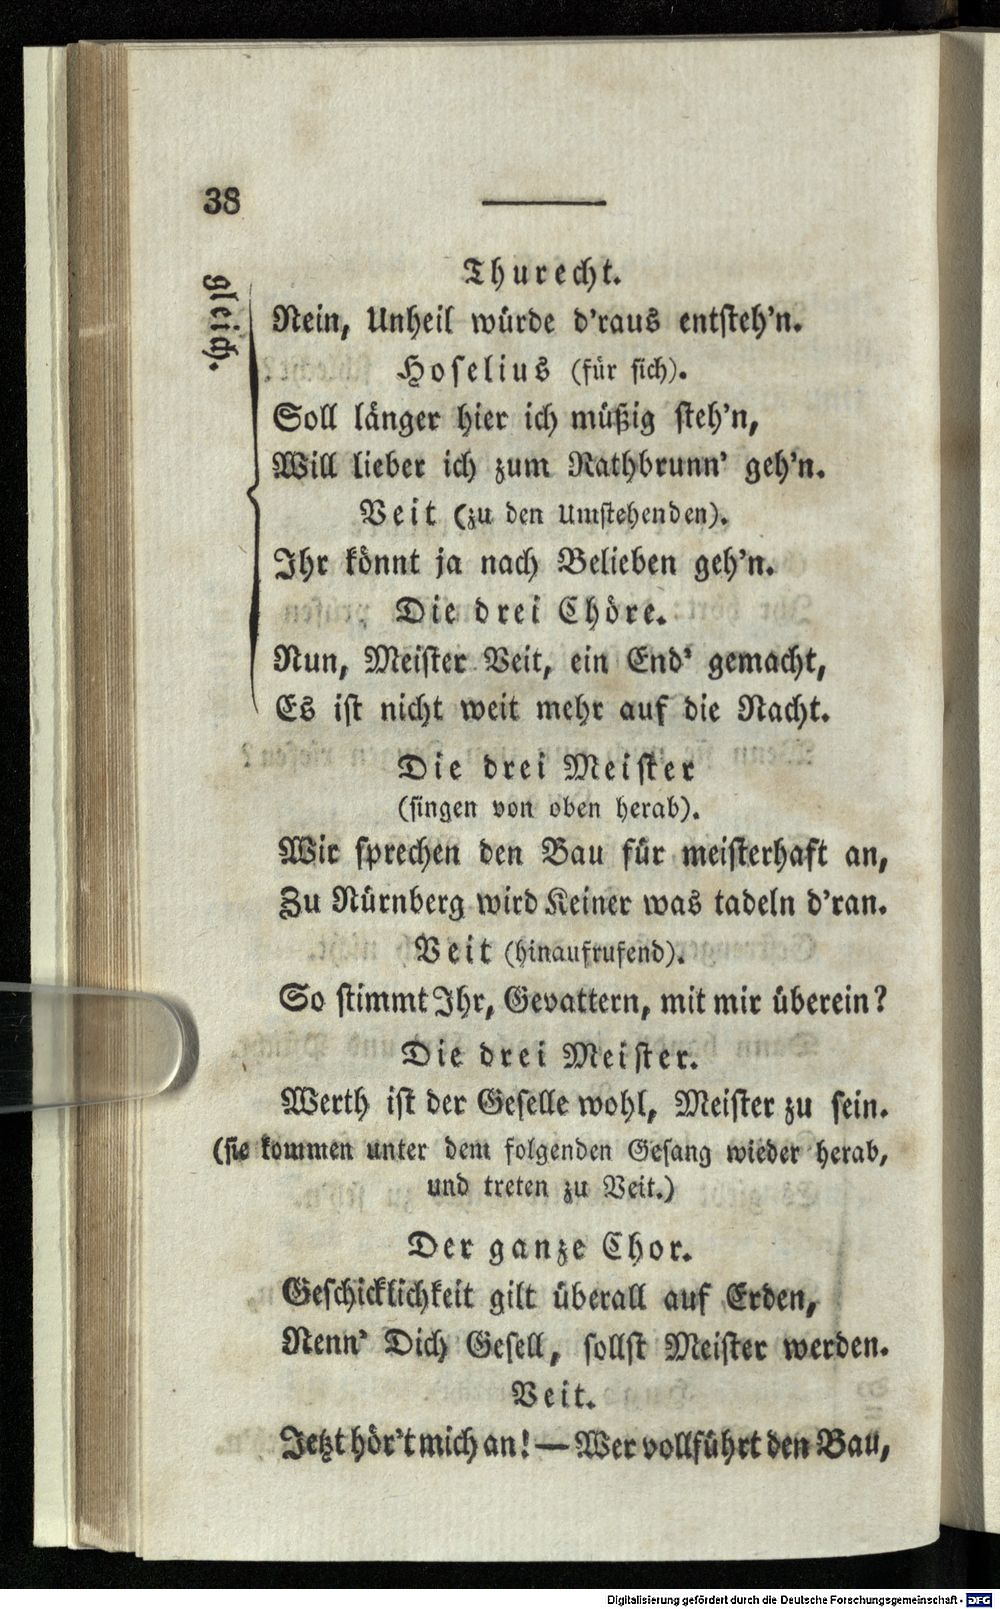 38
gleich.
Thurecht.
Nein, Unheil würde d'raus entsteh'n.
Hoselius (für sich).
Soll länger hier ich müßig steh'n,
Will lieber ich zum Rathbrunn' geh'n.
Veit (zu den Umstehenden).
Ihr könnt ja nach Belieben geh'n.
Die drei Chöre.
Nun, Meister Veit, ein End' gemacht,
Es ist nicht weit mehr auf die Nacht.
Die drei Meister
(singen von oben herab).
Wir sprechen den Bau für meisterhaft an,
Zu Nürnberg wird Keiner was tadeln d'ran.
Veit (hinaufrufend).
So stimmt Ihr, Gevattern, mit mir überein?
Die drei Meister.
Werth ist der Geselle wohl, Meister zu sein.
(sie kommen unter dem folgenden Gesang wieder herab,
und treten zu Veit.)
Der ganze Chor.
Geschicklichkeit gilt überall auf Erden,
Nenn' Dich Gesell, sollst Meister werden.
Veit.
Jetzt hör't mich an! — Wer vollführt den Bau,
Digitalisierung gefördert durch die Deutsche Forschungsgemeinschaft - DFG